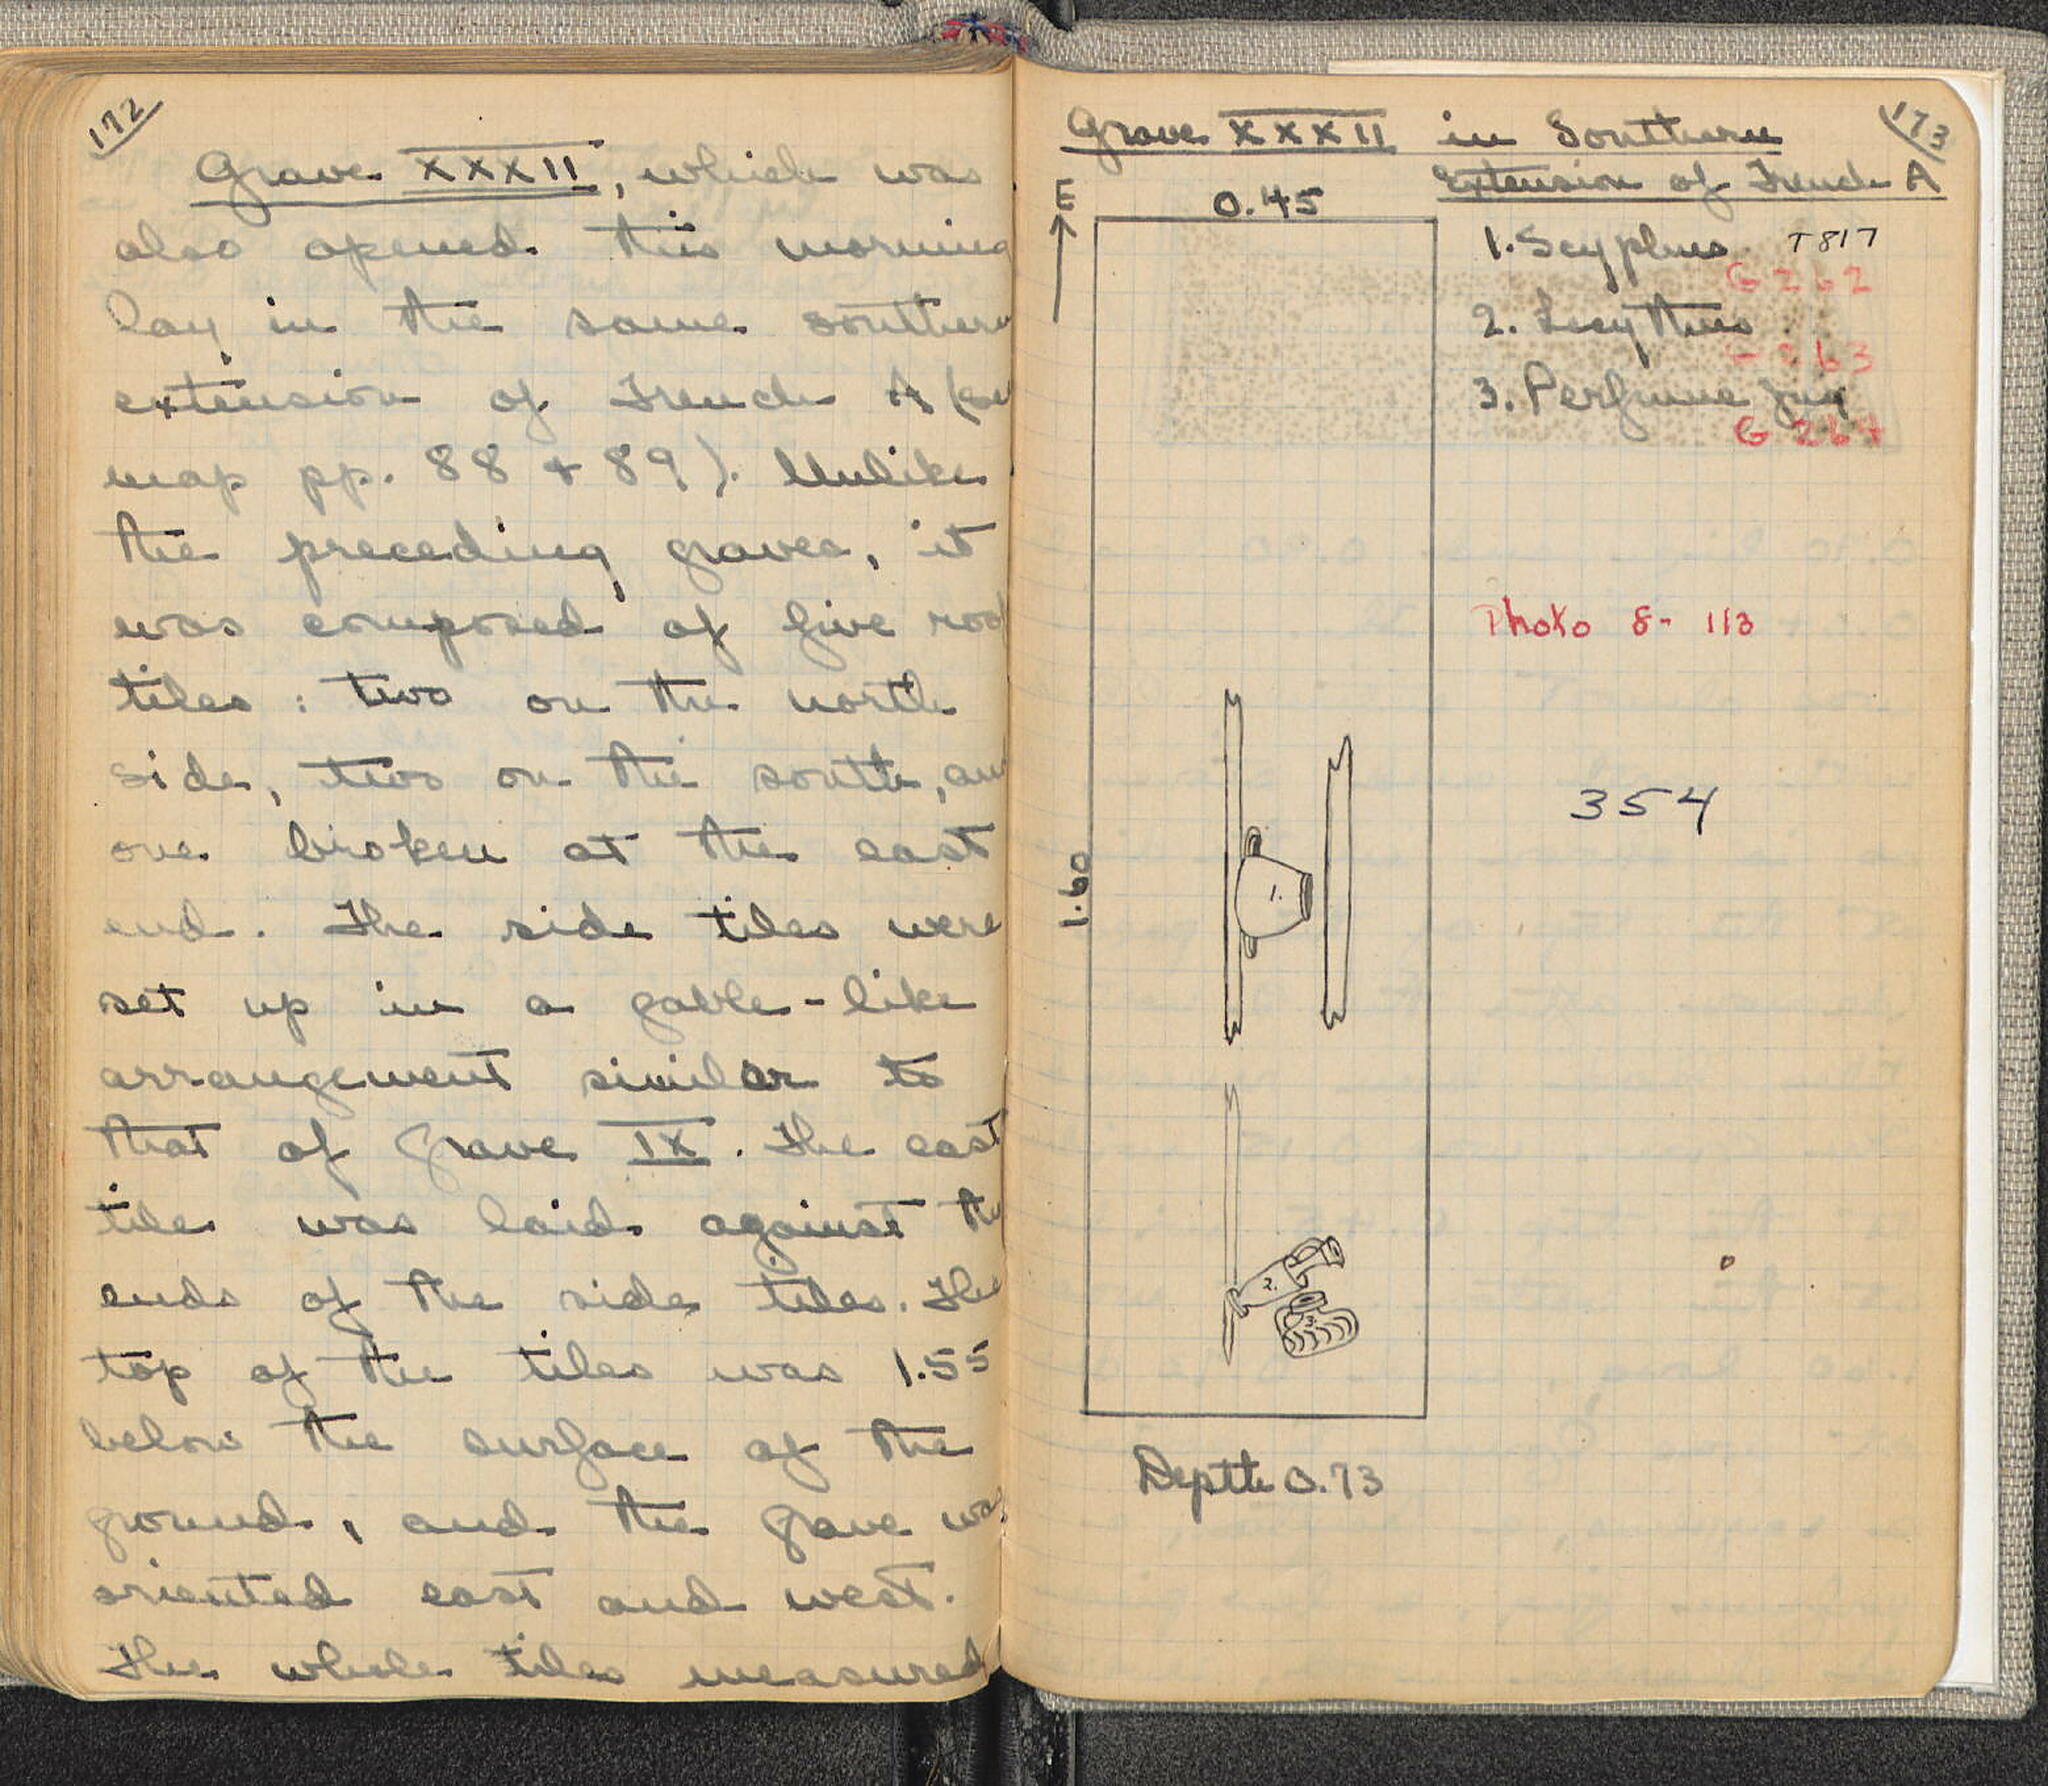 172
Grave XXXII, which was
also opened this morning
lay in the same southern
extension of Trench A (see
map pp. 88 + 89). Unlike
the preceding graves, it
was composed of five roof
tiles : two on the north
side, two on the south, and
one broken at the east
end. The side tiles were
set up in a gable-like
arrangement similar to
that of Grave IX. The east
tile was laid against the
ends of the side tiles. The
top of the tiles was 1.55
below the surface of the
ground, and the grave was
oriented east and west.
The whole tiles measured
173
Grave XXXII in Southern
Extension of Trench A
E
0.45
1. Scyphus T817
G 262
2. Lecythus
G 263
3. Perfume Jug
G 264
Photo 8- 113
354
1.60
1.
2.
3.
Depth 0.73